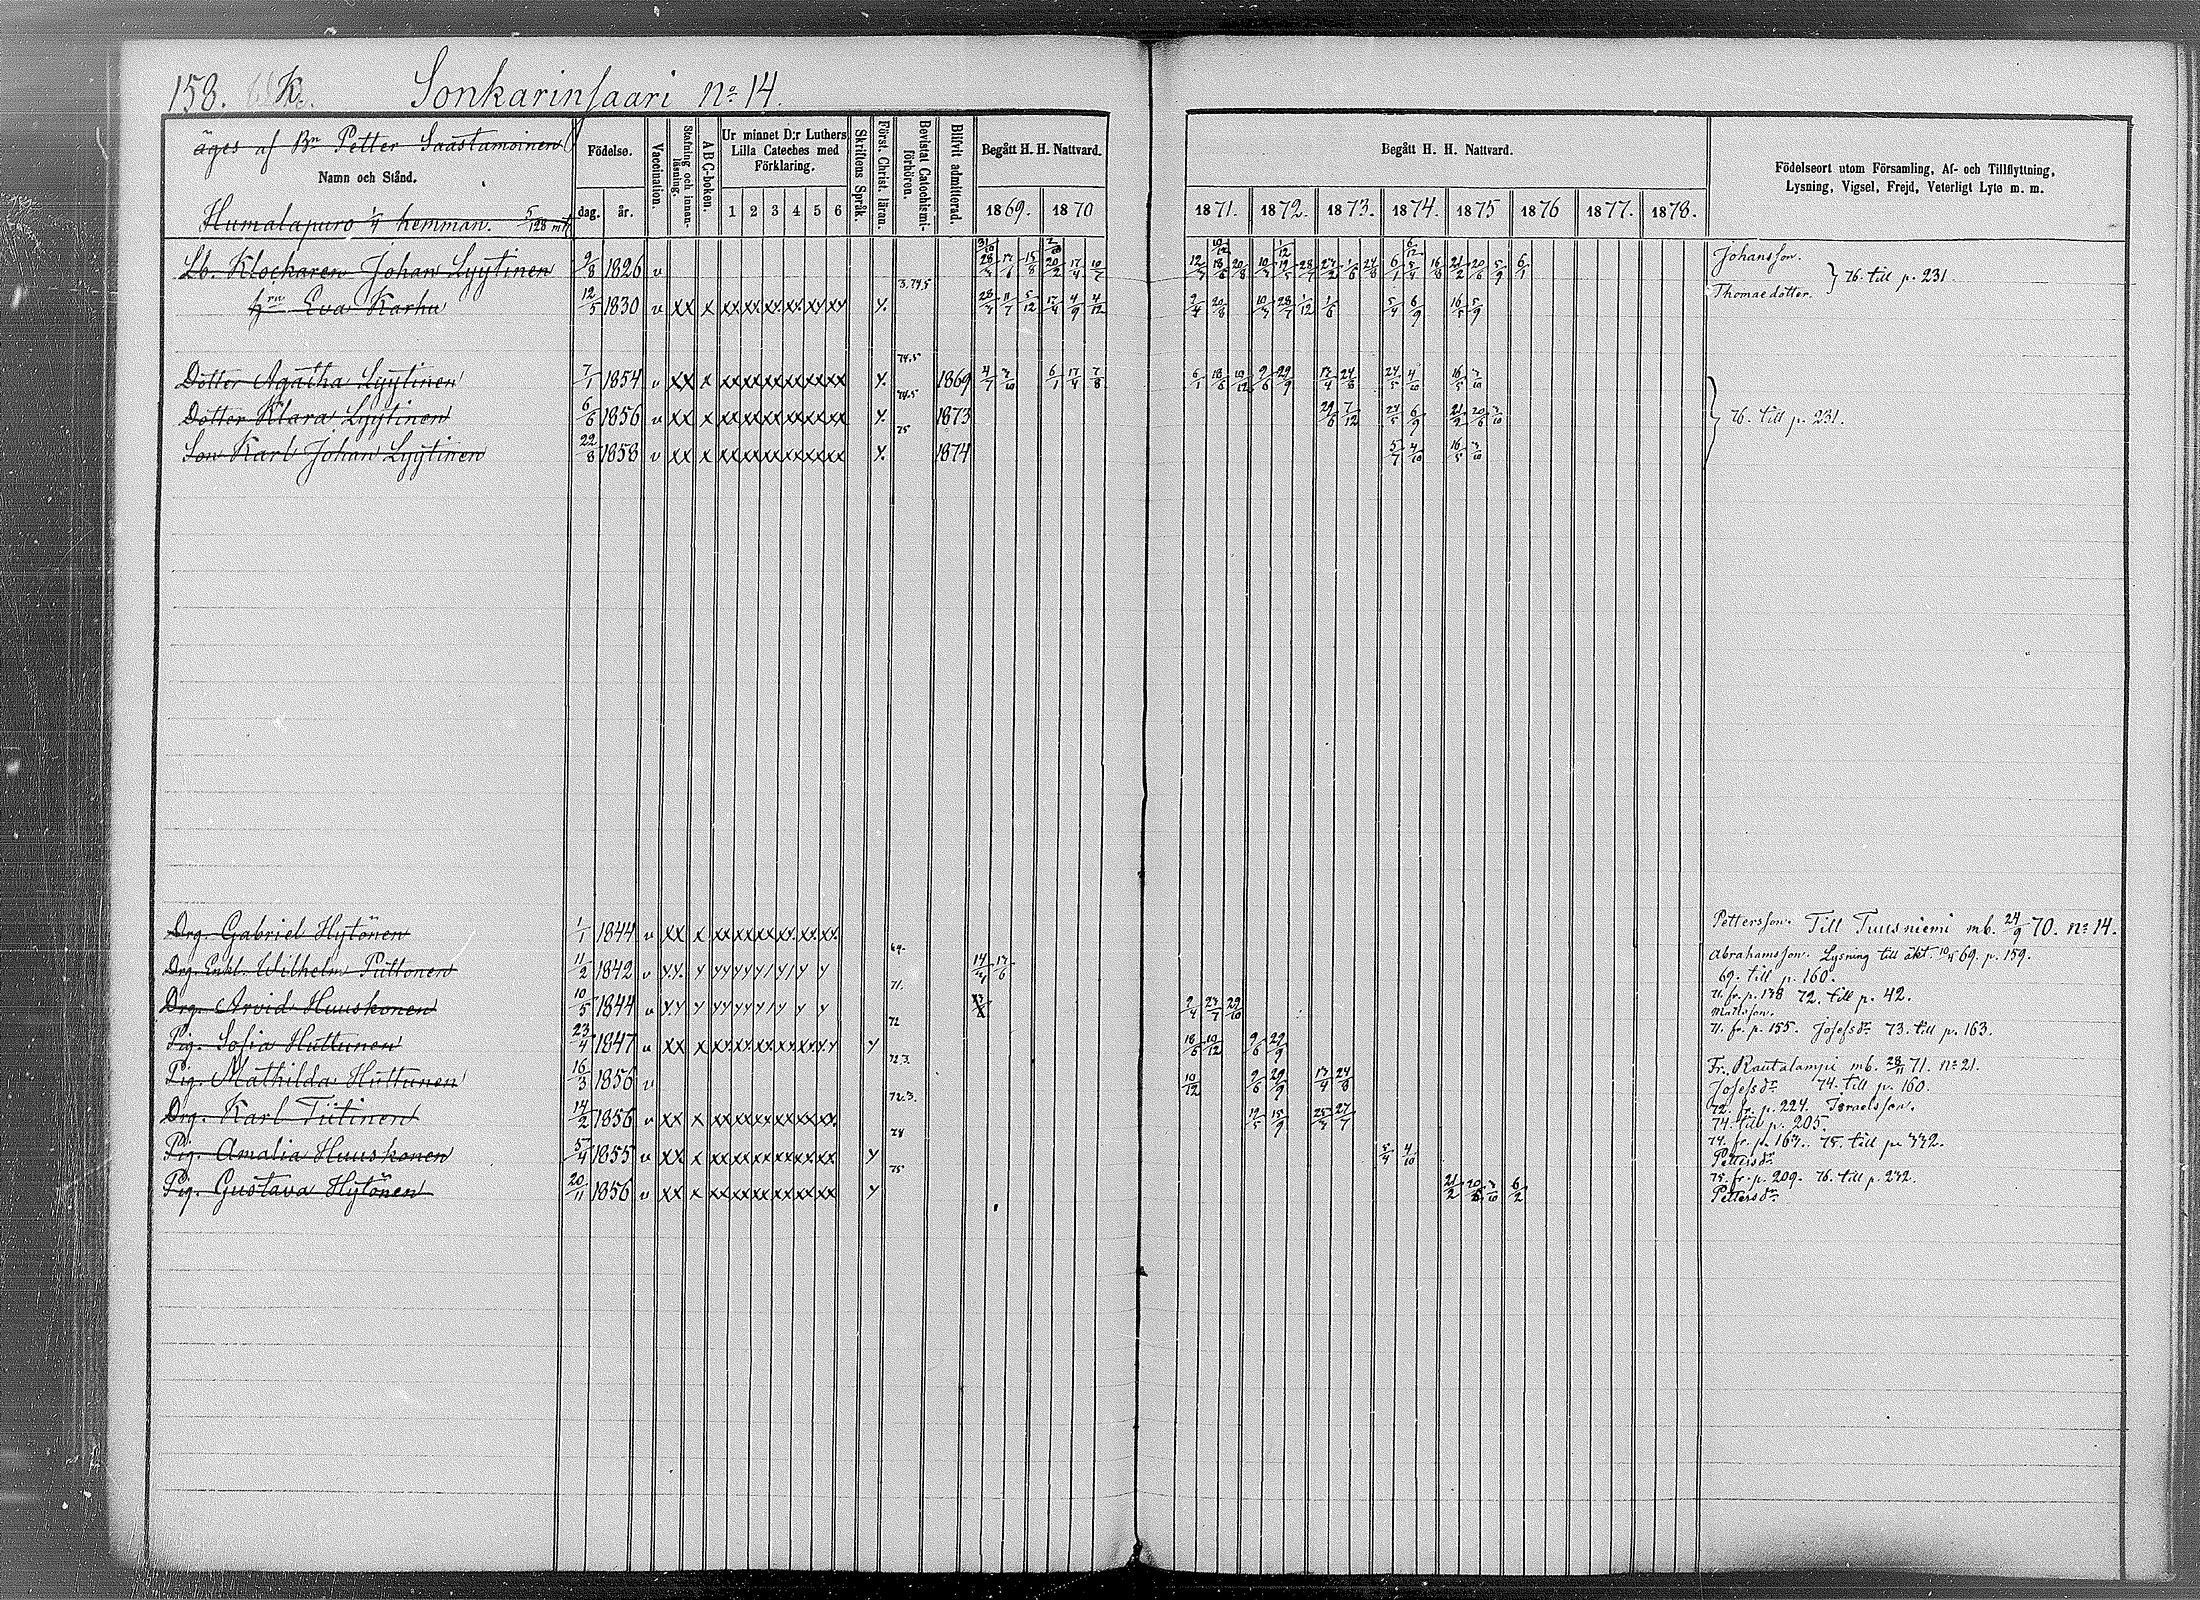 158. K. Sonkarinsaari No 14.
äges af Bn Petter Saastamoinen
Namn och Stånd.
Humalapuro 1/4 hemman. 5/128 mtl
Födelse.
dag. år.
Vaccination.
Stafning och innanläsning.
A B C-boken.
Ur minnet D:r Luthers Lilla Cateches med Förklaring.
1 2 3 4 5 6
Skriftens Språk.
Först. Christ. läran.
Bevistat Catechismiförhören.
Blifvit admitterad.
Begått H. H. Nattvard.
1869. 1870
Begått H. H. Nattvard.
1871. 1872. 1873. 1874. 1875 1876 1877. 1878.
Födelseort utom Församling, Af- och Tillflyttning,
Lysning, Vigsel, Frejd, Veterligt Lyte m. m.
Lb. Klockaren Johan Lyytinen 9/8 1826 v Johansson.
76. till p. 231.
hru Eva Karhu 12/5 1830 v xx x xx xx xx xx xx xx y. Thomaedotter.
Dotter Agatha Lyytinen 7/1 1854 v xx x xx xx xx xx xx xx y. 1869
Dotter Klara Lyytinen 6/6 1856 v xx x xx xx xx xx xx xx y. 1873 76. till p. 231.
Son Karl Johan Lyytinen 22/8 1858 v xx x xx xx xx xx xx xx y. 1874
Drg. Gabriel Hytönen 1/1 1844 v xx x xx xx xx xx xx xx Pettersson. Till Tuusniemi mb. 24/9 70. no 14.
Drg. Enkl. Wilhelm Puttonen 11/2 1842 v 69. 14/3 13/6 Abrahamsson. Lysning till äkt. 69. p. 159.
69. till p. 160.
Drg. Arvid Huuskonen 10/5 1844 v 71. 2/4 23/7 29/10 71. fr. p. 138 72. till p. 42.
Mattsson.
Pig. Sofia Huttunen 23/4 1847 v xx x xx xx xx xx y 72 18/6 10/12 9/6 29/9 71. fr. p. 155. Josefsdr 73. till p. 163.
Pig. Mathilda Huttunen 16/3 1856 v 72.3. 10/12 9/6 29/9 13/4 24/8 Fr. Rautalampi mb. 28/11 71. no 21.
Josefsdr 74. till p. 160.
Drg. Karl Tiitinen 14/2 1856 v xx x xx xx xx xx xx xx 72.3. 12/5 15/9 25/3 27/7 72. fr. p. 224. Israelsson.
74. till p. 205.
Pig. Amalia Huuskonen 5/4 1855 v xx x xx xx xx xx xx xx y 5/4 4/10 74. fr. p. 167. 75. till p. 332.
Pettersdr
Pig. Gustava Hytönen 20/11 1856 v xx x xx xx xx xx xx xx y 75 21/2 20/6 3/10 6/2 75. fr. p. 209. 76. till p. 232.
Pettersdr